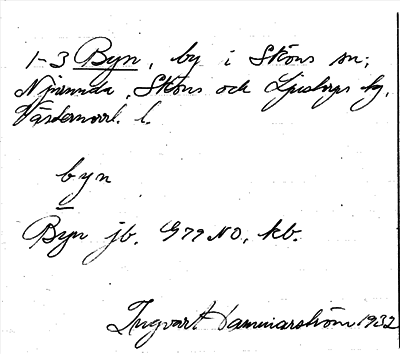 1-3 Byn, by i Sköns sn,
Njurunda, Sköns och Ljustorps tg,
Västernorrl. l.
byn
Byn jb, G77 NO, kb.
Ingvart Hammarström 1932